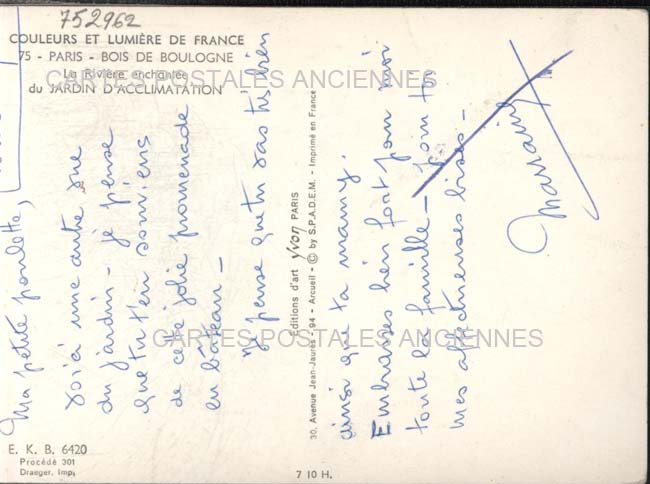 752962
COULEURS ET LUMIÈRE DE FRANCE
75 - PARIS - BOIS DE BOULOGNE
La Rivière enchantée
du JARDIN D'ACCLIMATATION
CARTES POSTALES ANCIENNES
Ma petite poulette,
voici une autre vue
du jardin - je pense
que tu t'en souviens
de cette jolie promenade
en bâteau -
Je pense que tu vas très bien
ainsi que ta mamy.
Embrasses bien fort pour moi
toute la famille - pour toi
mes affectueuses bises -
Marraine
Editions d'art yvon PARIS
30, Avenue Jean-Jaurès - 94 - Arcueil - © by S.P.A.D.E.M. - Imprimé en France
CARTES POSTALES ANCIENNES
E. K. B. 6420
Procédé 301
Draeger, Imp.
7 10 H.